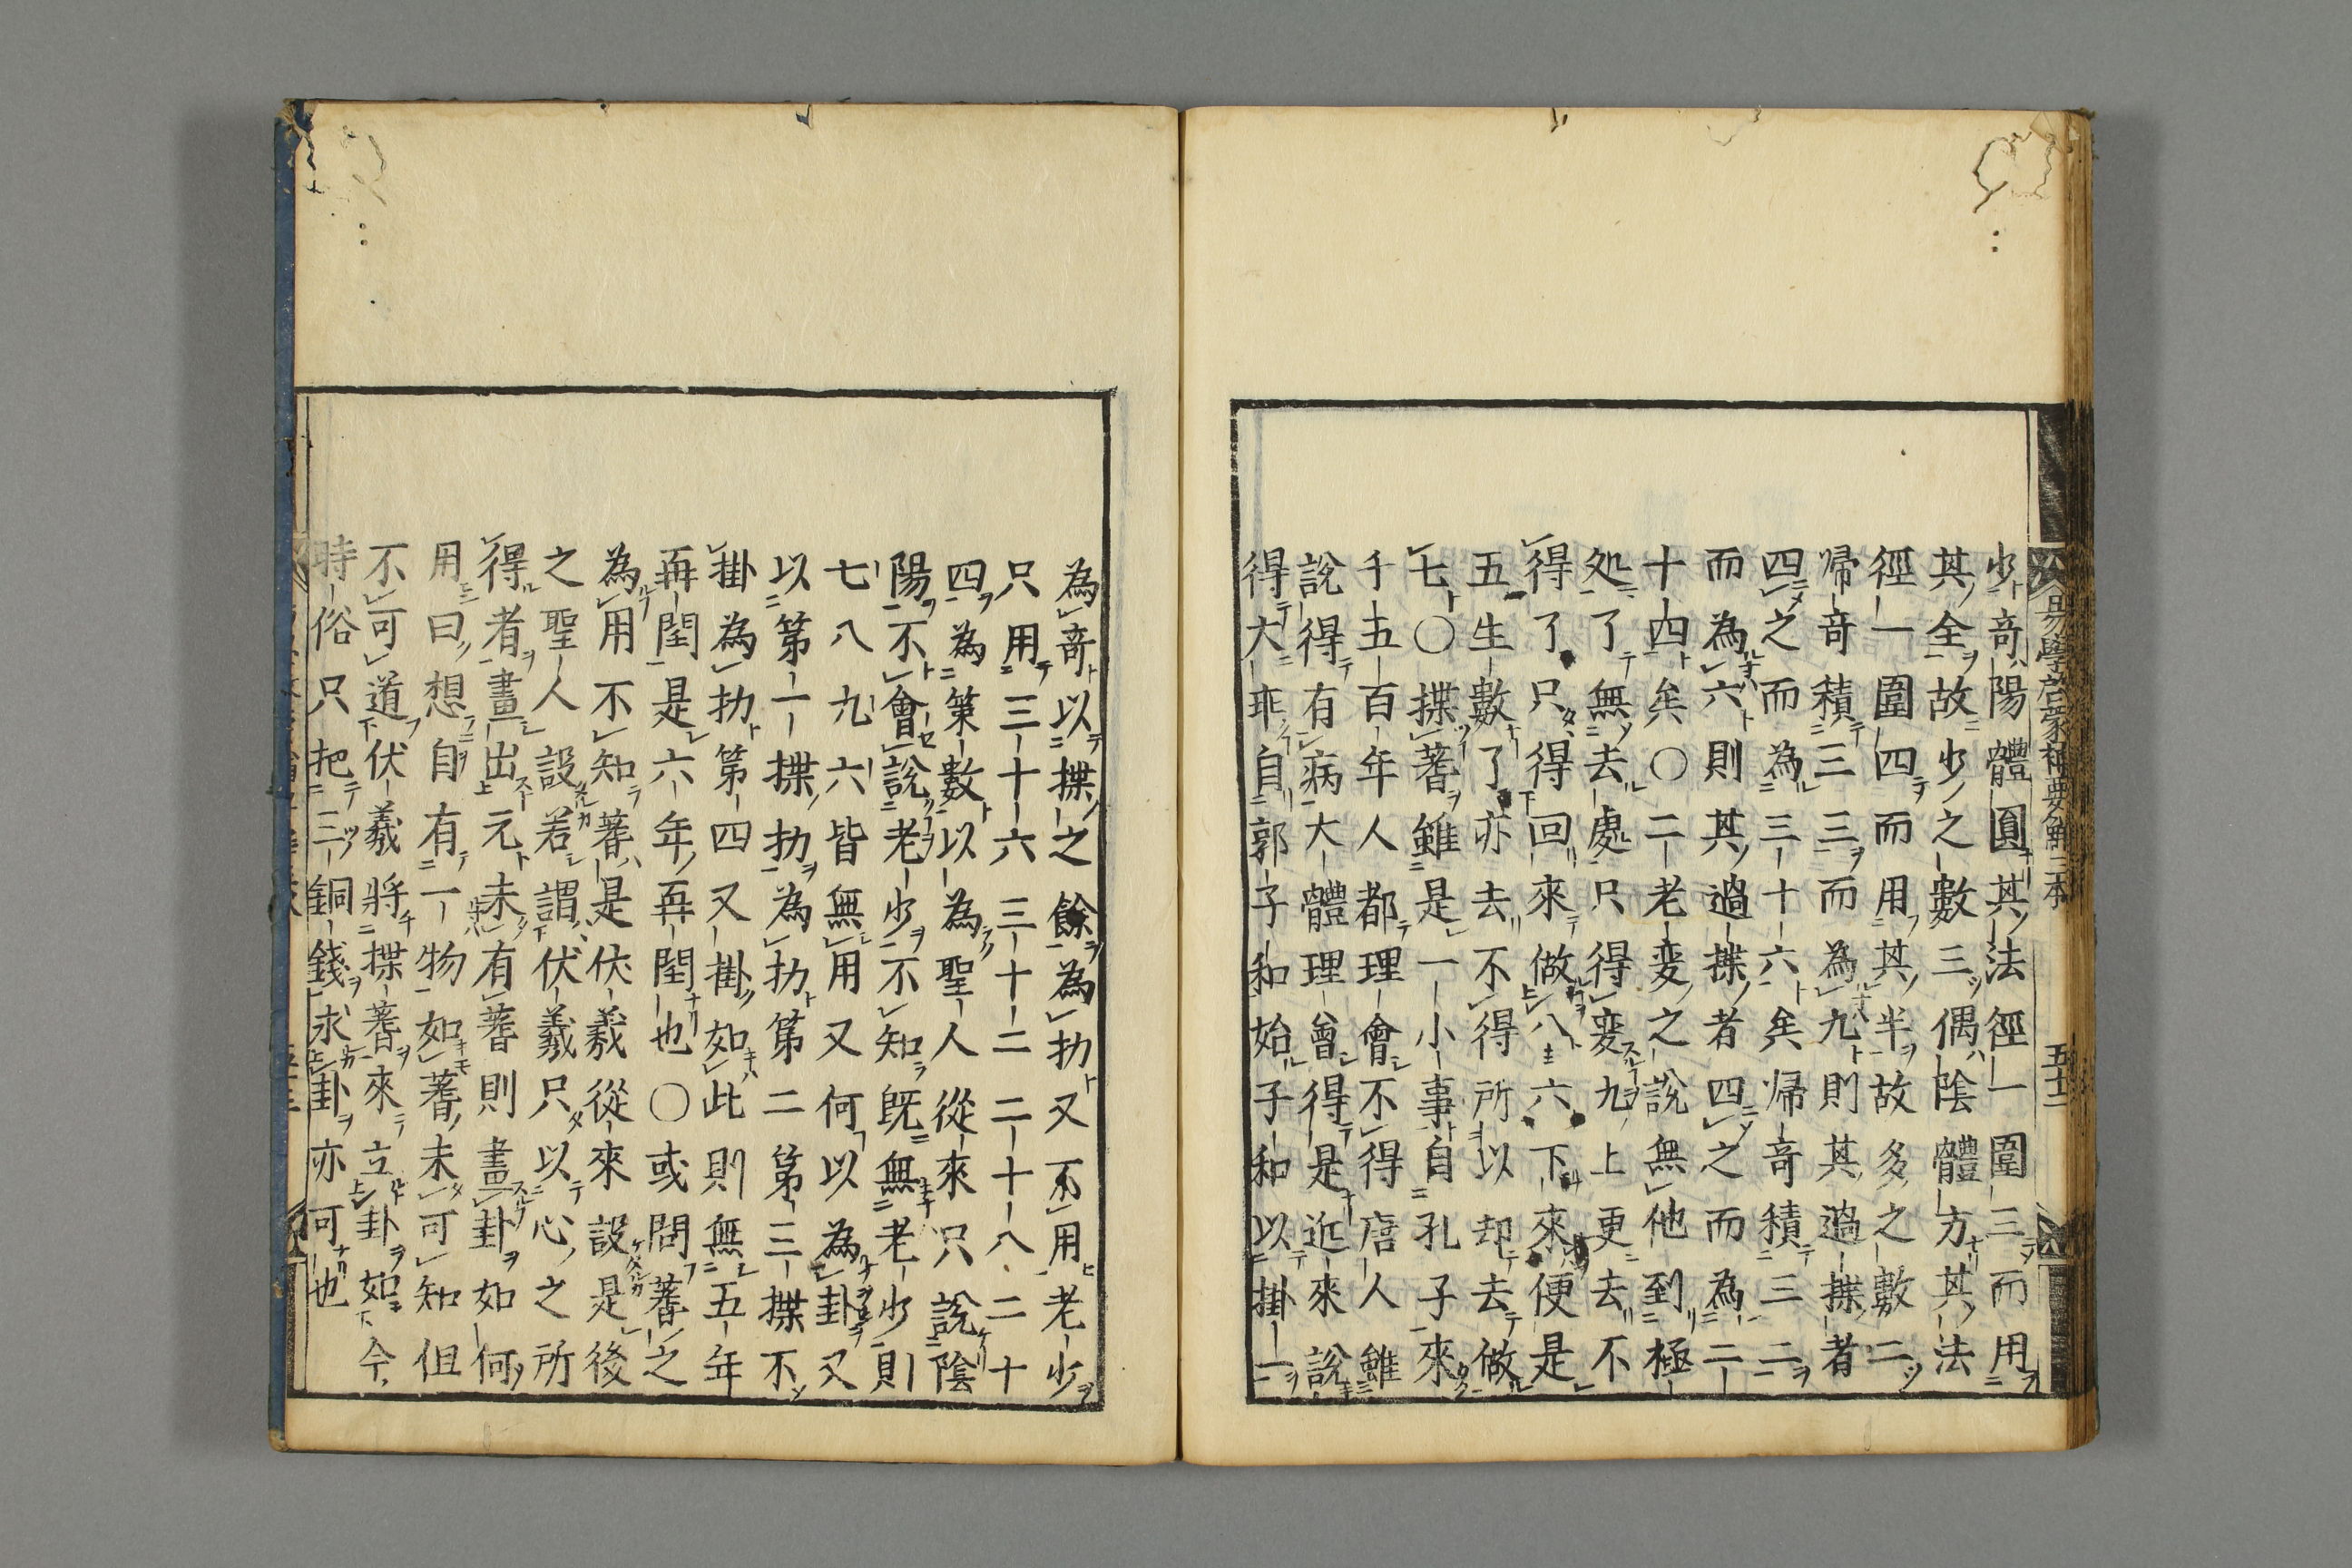 少奇陽體圓其法徑一圍三而用
其全故少之數三偶陰體方其法
徑一圍四而用其半故多之數二
歸奇積三三而為九則其過揲者
四之而為三十六矣歸奇積三二
而為六則其過揲者四之而為二
十四矣〇二老変之說無他到極
処了無去處只得変九上更去不
得了只得回來做八六下來便是
五生數了亦去不得所以却去做
七〇揲蓍雖是一小事自孔子來
千五百年人都理會不得唐人雖
說得有病大體理會得是近來說
得大乖自郭子和始子和以掛一
為奇以揲之餘為扐又不用老少
只用三十六三十二二十八二十
四為策數以為聖人從來只說陰
陽不會說老少不知既無老少則
七八九六皆無用又何以為卦又
以第一揲扐為扐第二第三揲不
掛為扐第四又掛如此則無五年
再閏是六年再閏也〇或問蓍之
為用不知蓍是伏羲從來設是後
之聖人設若謂伏羲只以心之所
得者畫出元未有蓍則畫卦如何
用曰想自有一物如蓍未可知但
不可道伏羲將揲蓍來立卦如今
時俗只把三銅錢求卦亦可也
易學啓蒙
五十二